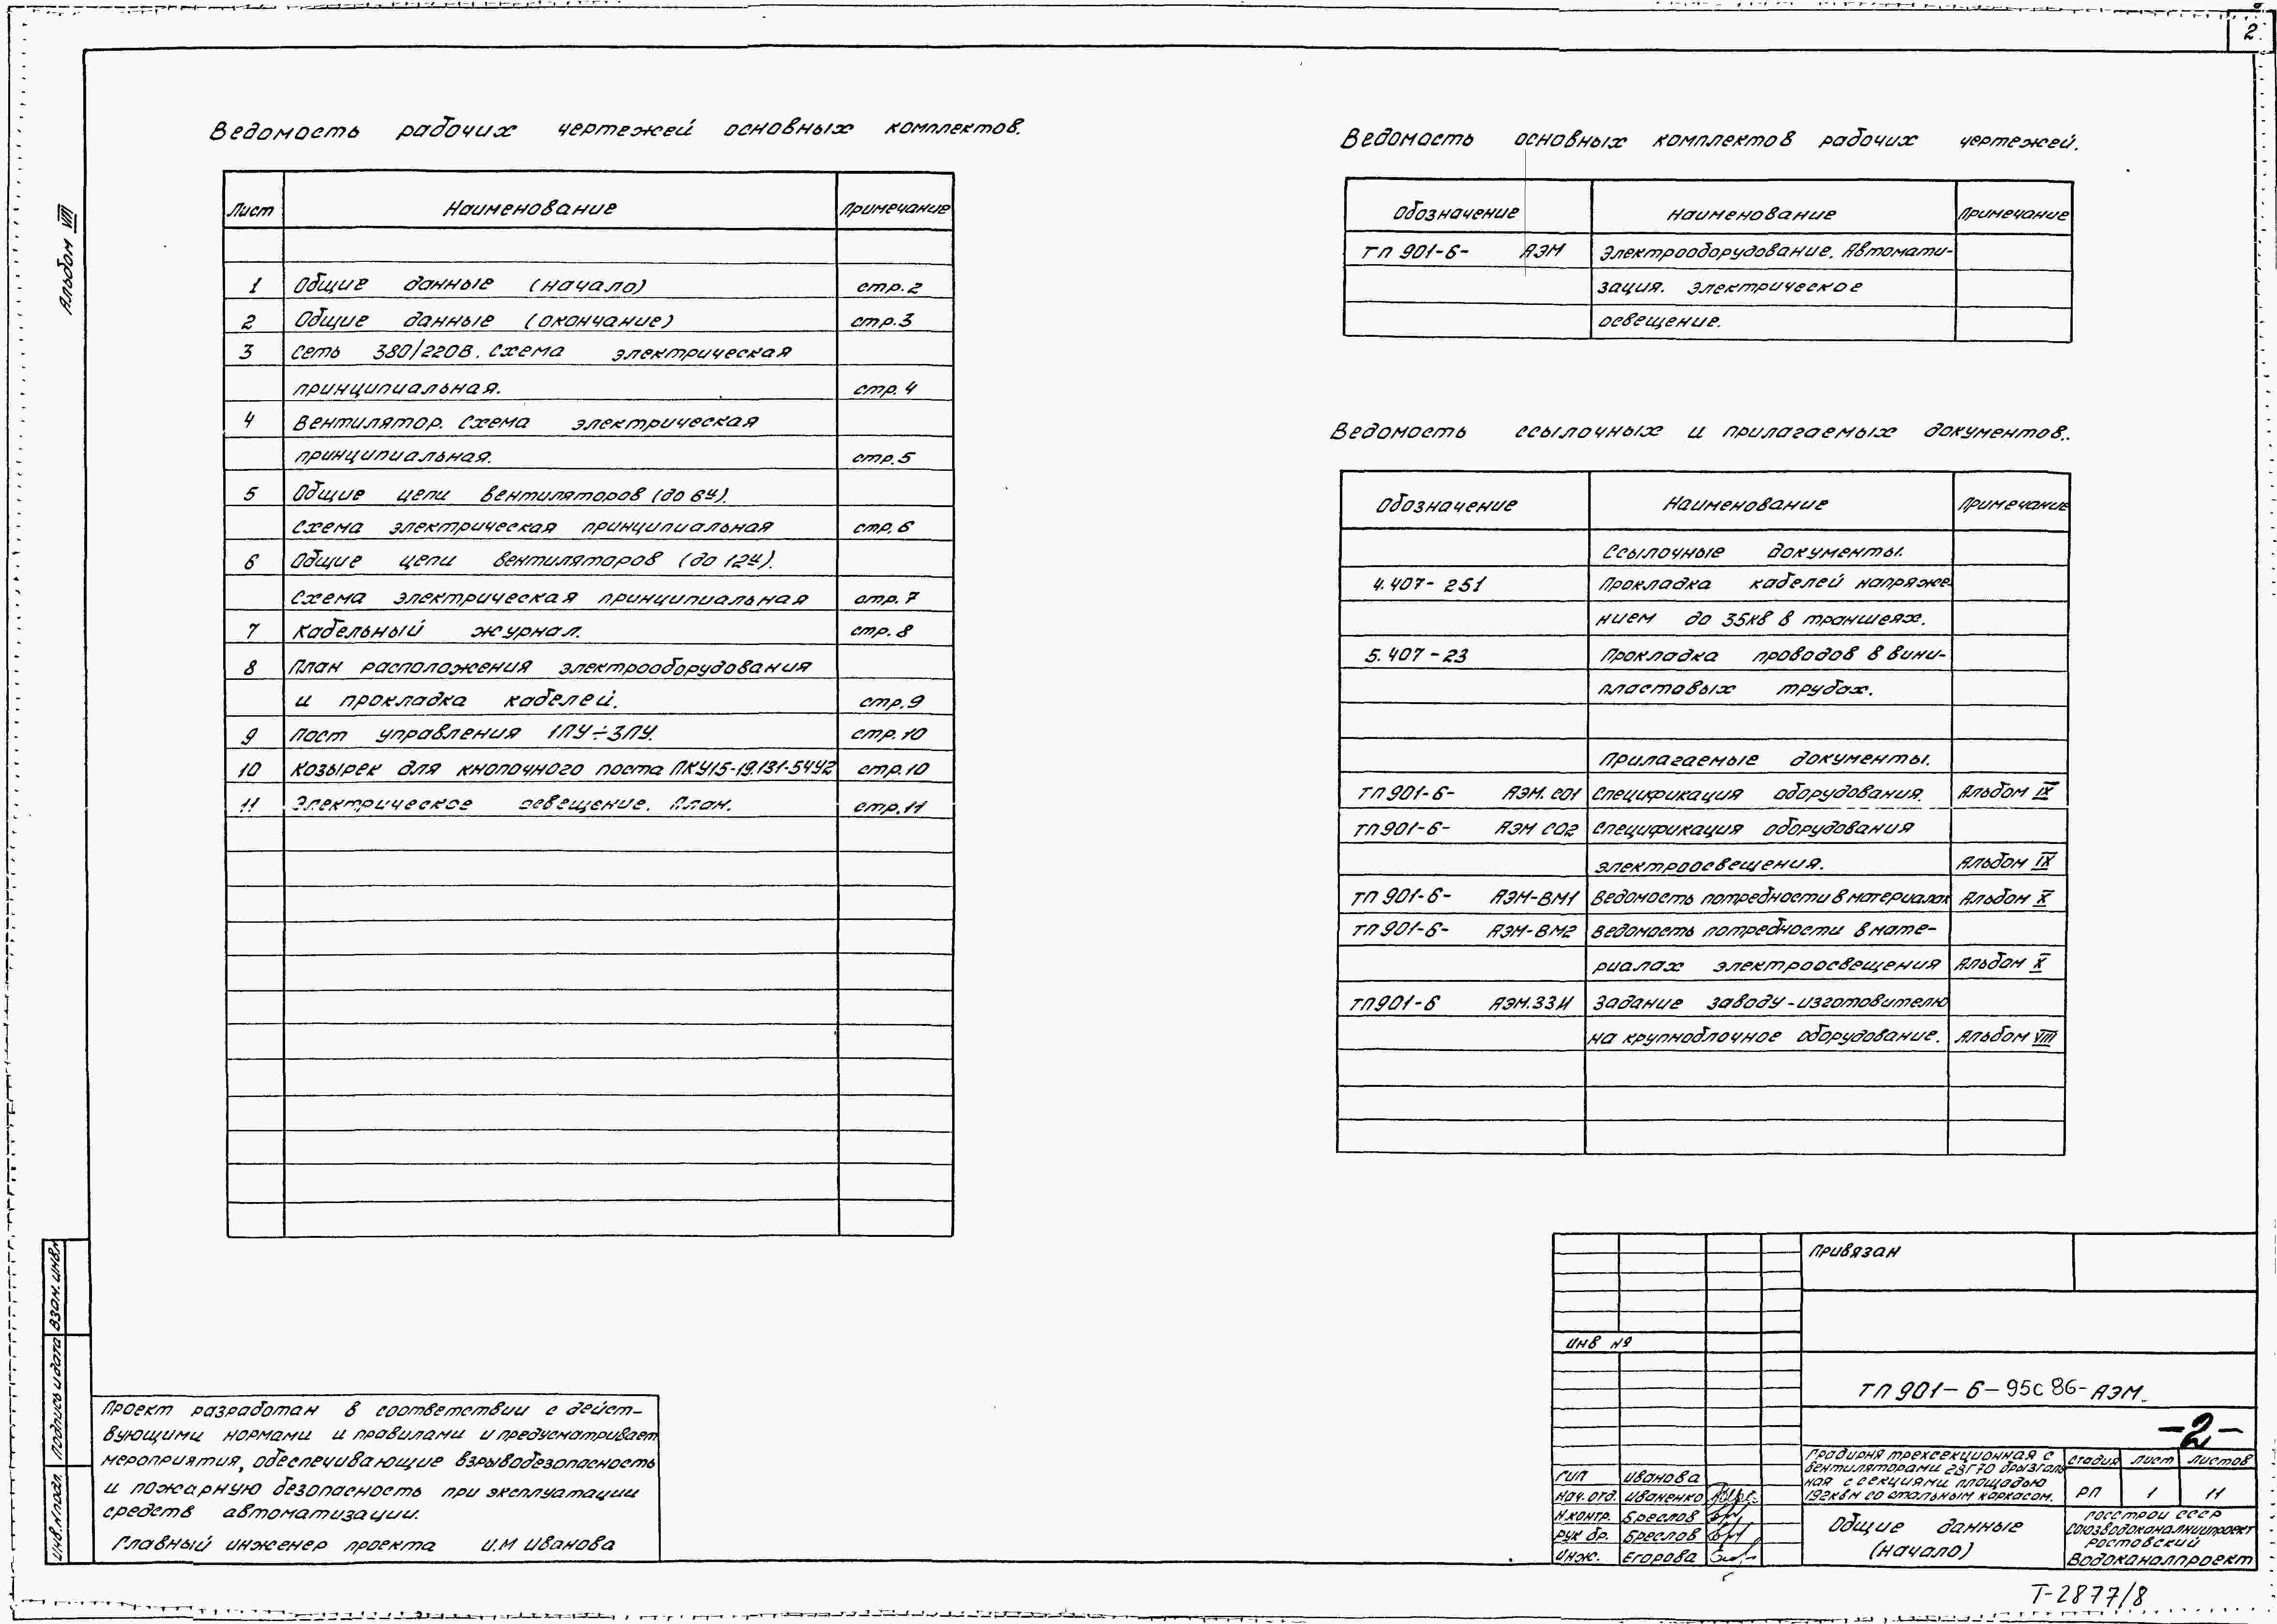 2
Альбом VIII
Ведомость рабочих чертежей основных комплектов.
Лист Наименование Примечание
1 Общие данные (начало) стр.2
2 Общие данные (окончание) стр.3
3 Сеть 380/220В. Схема электрическая
принципиальная. стр.4
4 Вентилятор. Схема электрическая
принципиальная. стр.5
5 Общие цепи вентиляторов (до 6й).
Схема электрическая принципиальная стр.6
6 Общие цепи вентиляторов (до 12й).
Схема электрическая принципиальная стр.7
7 Кабельный журнал. стр.8
8 План расположения электрооборудования
и прокладка кабелей. стр.9
9 Пост управления 1ПУ÷3ПУ. стр.10
10 Козырек для кнопочного поста ПКУ15-19.131-54У2 стр.10
11 Электрическое освещение. План. стр.11
Ведомость основных комплектов рабочих чертежей.
Обозначение Наименование Примечание
ТП 901-6- АЭМ Электрооборудование. Автомати-
зация. Электрическое
освещение.
Ведомость ссылочных и прилагаемых документов.
Обозначение Наименование Примечание
Ссылочные документы.
4.407-251 Прокладка кабелей напряже-
нием до 35кв в траншеях.
5.407-23 Прокладка проводов в вини-
пластовых трубах.
Прилагаемые документы.
ТП 901-6- АЭМ.СО1 Спецификация оборудования. Альбом IX
ТП 901-6- АЭМ СО2 Спецификация оборудования
электроосвещения. Альбом IX
ТП 901-6- АЭМ-ВМ1 Ведомость потребности в материалах Альбом X
ТП 901-6- АЭМ-ВМ2 Ведомость потребности в мате-
риалах электроосвещения Альбом X
ТП 901-6 АЭМ.ЗЗИ Задание заводу-изготовителю
на крупноблочное оборудование. Альбом VIII
Взам. инв.№
Подпись и дата
Инв.№ подл.
Проект разработан в соответствии с дейст-
вующими нормами и правилами и предусматривает
мероприятия, обеспечивающие взрывобезопасность
и пожарную безопасность при эксплуатации
средств автоматизации.
Главный инженер проекта И.М Иванова
Привязан
Инв №
ТП 901-6-95с86-АЭМ.
-2-
Градирня трехсекционная с
вентиляторами 2ВГ70 брызгаль
ная с секциями площадью
192кв м со стальным каркасом.
Стадия Лист Листов
РП 1 11
ГИП Иванова
Нач. отд. Иваненко
Н.контр. Бреслов
Рук бр. Бреслов
Инж. Егорова
Общие данные
(начало)
Госстрой СССР
Союзводоканалниипроект
Ростовский
Водоканалпроект
Т-2877/8